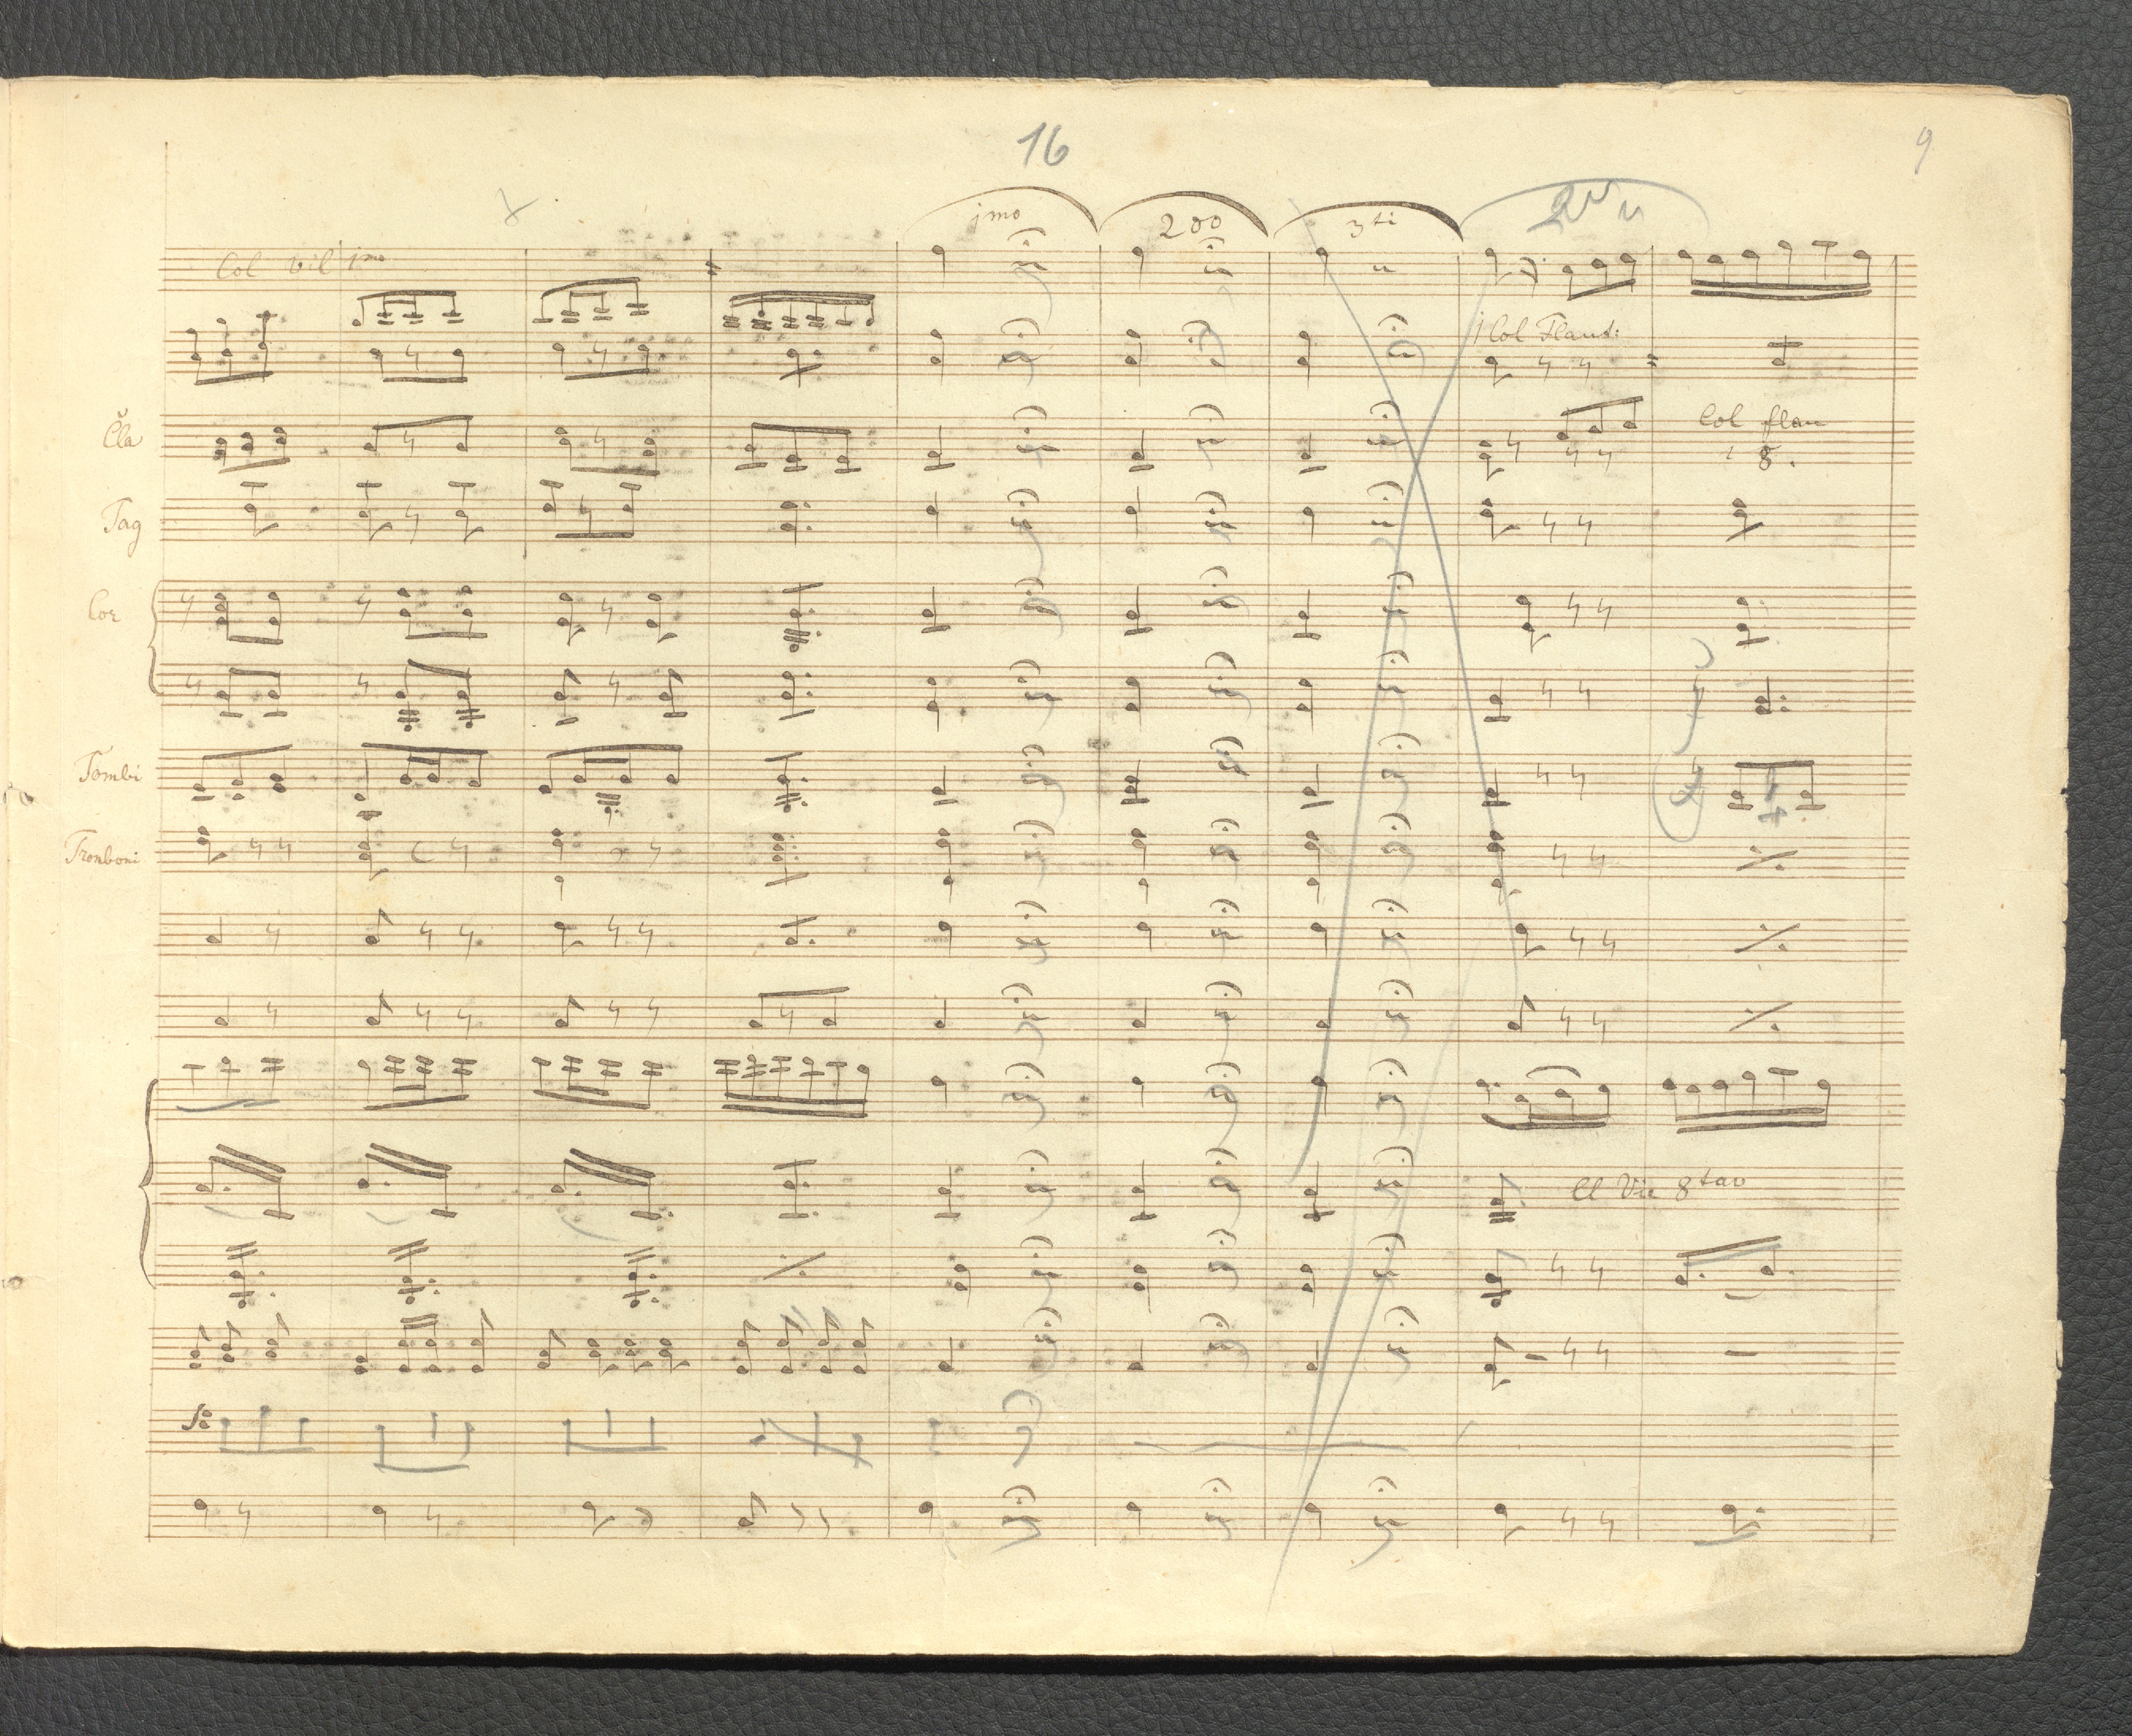 16
9
jmo
2do
3ti
2do
Col viol jmo
j Col Flaut:
Cla
Col flau
8.
Fag
Cor
Tombi
Tromboni
Cl Vio 8tav